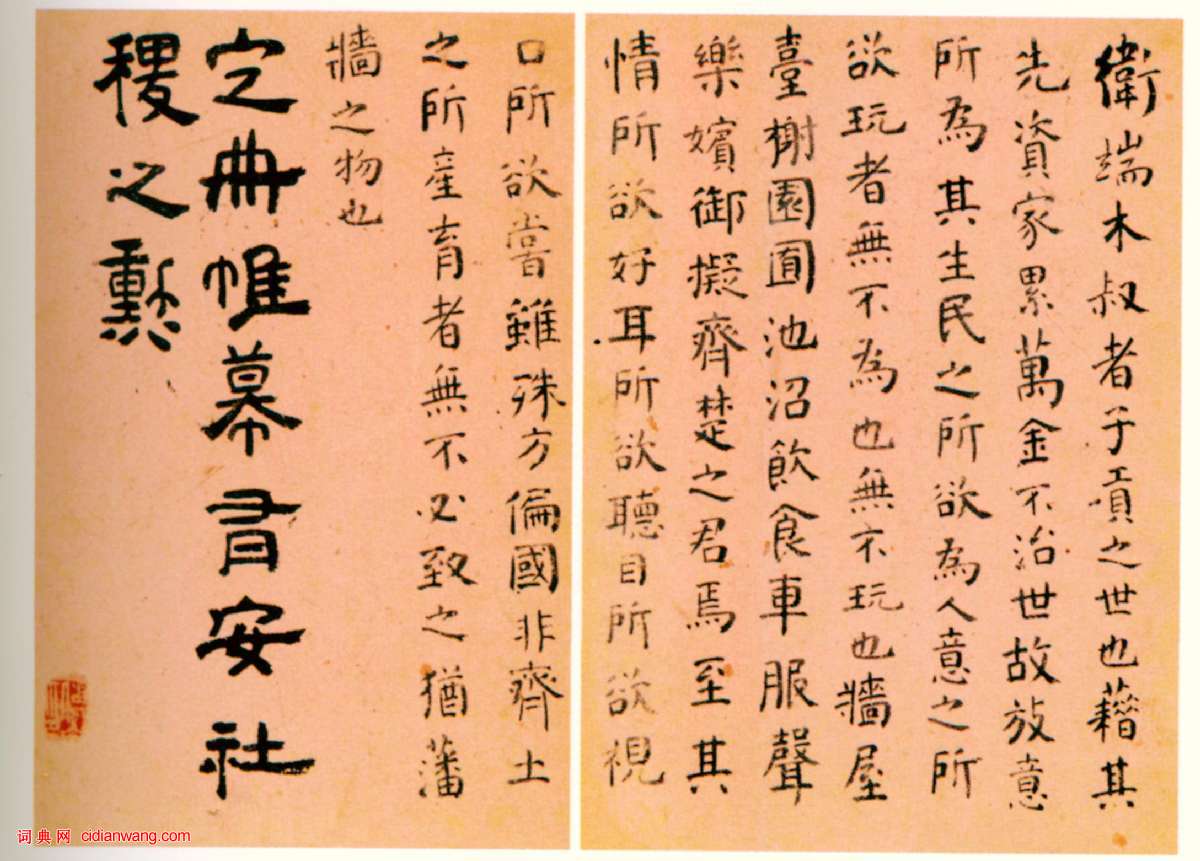 衛端木叔者子貢之世也藉其
先資家累萬金不治世故放意
所為其生民之所欲為人意之所
欲玩者無不為也無不玩也牆屋
臺榭園囿池沼飲食車服聲
樂嬪御擬齊楚之君焉至其
情所欲好耳所欲聽目所欲視
口所欲嘗雖殊方偏國非齊土
之所產育者無不必致之猶藩
牆之物也
定冊帷幕有安社
稷之勳
词典网 cidianwang.com